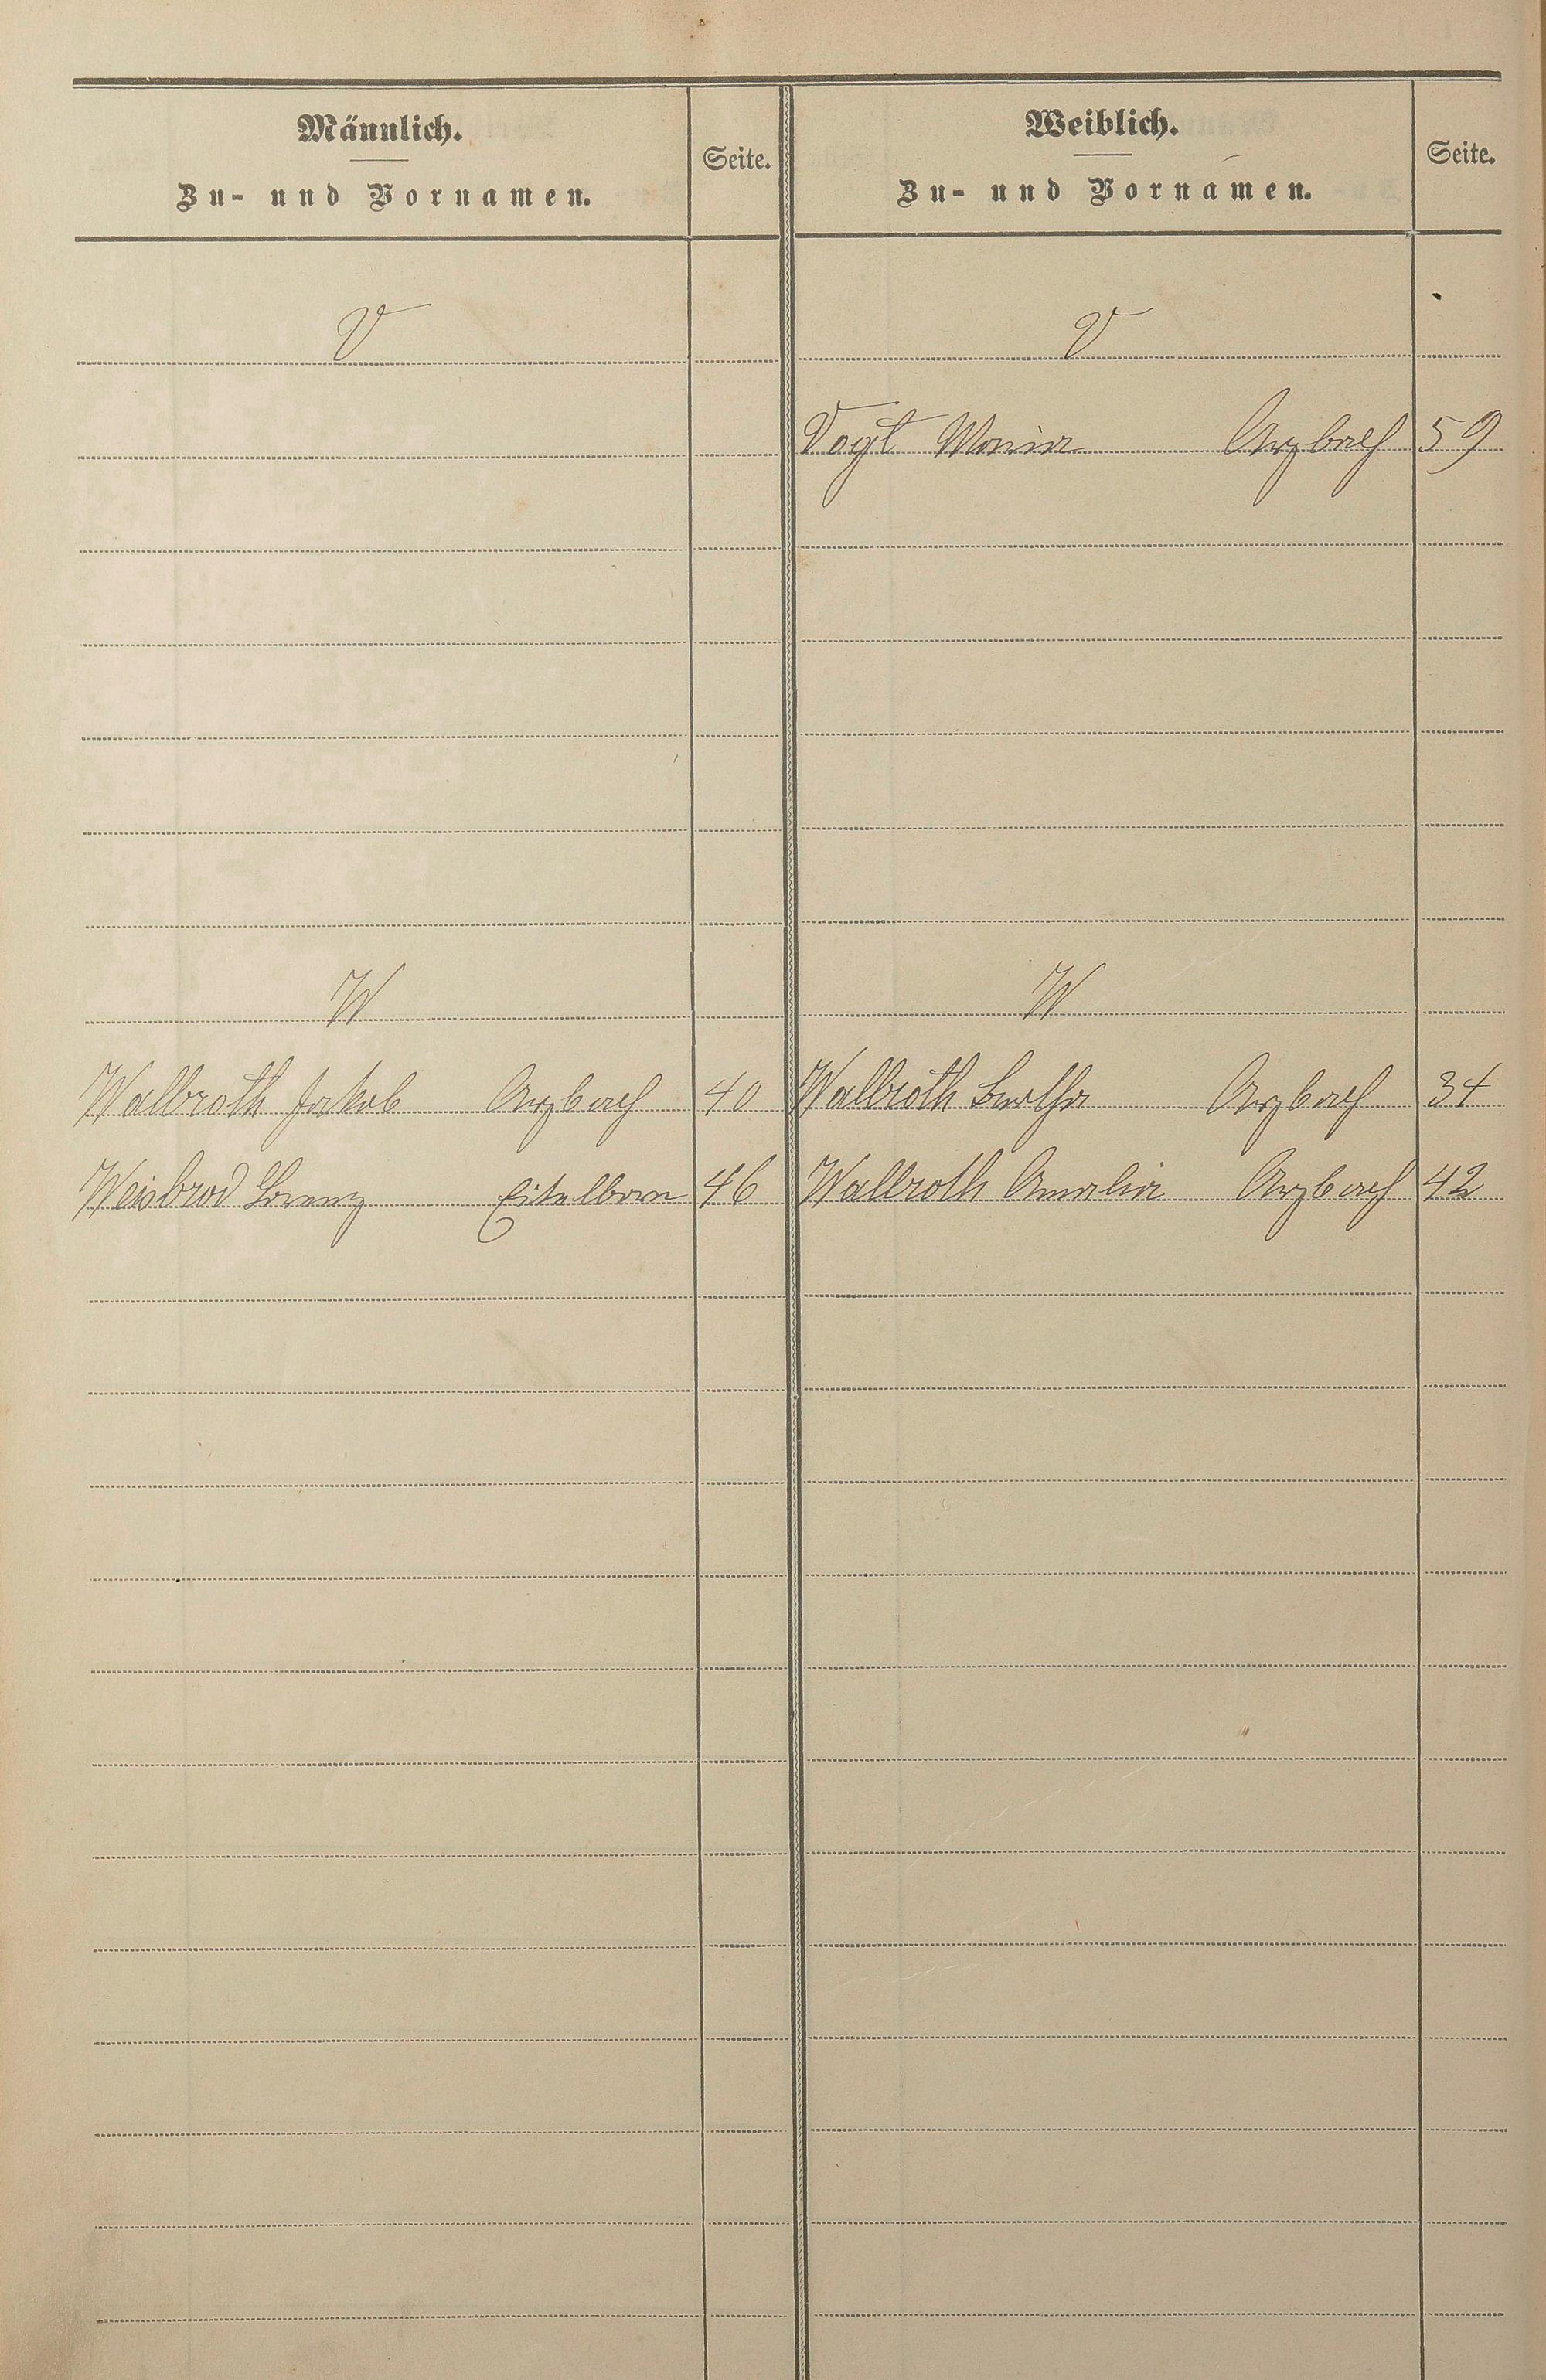 Männlich.
Zu- und Vornamen.
Seite.
Weiblich.
Zu- und Vornamen.
Seite.
V
V
Vogt Maria Arzbach 59
W
W
Walbroth Jakob Arzbach 40
Walbroth Bertha Arzbach 34
Weisbrod Lorenz Eitelborn 46
Walbroth Amalia Arzbach 42